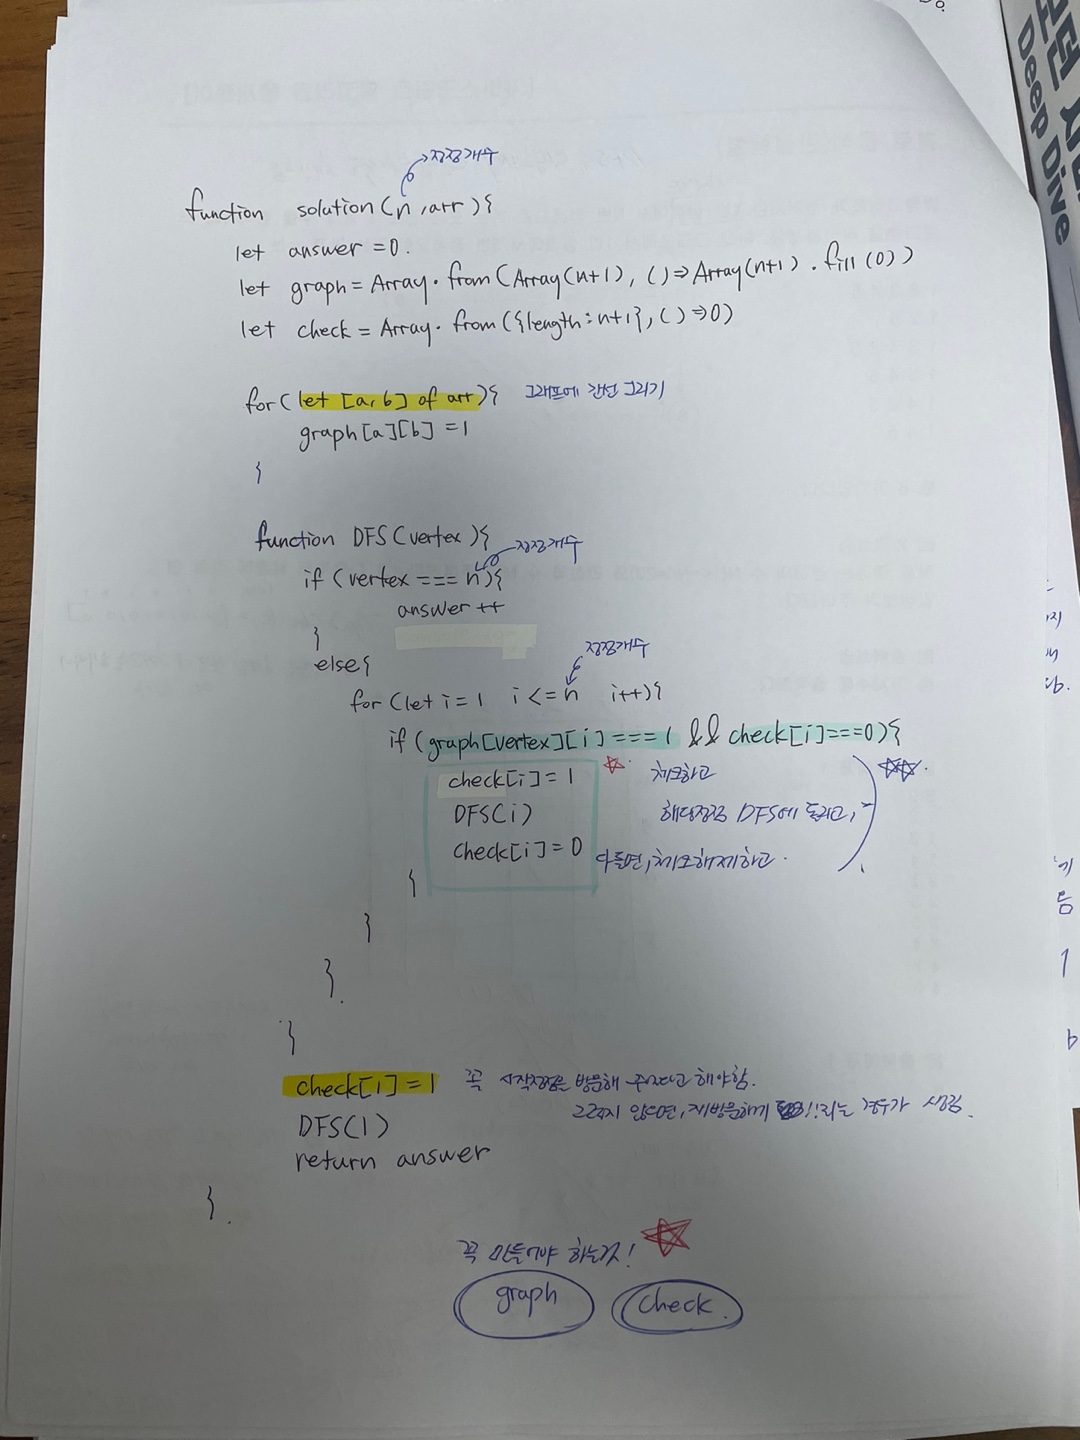 정점개수
function solution(n, arr){
let answer = 0.
let graph = Array.from(Array(n+1), ()=>Array(n+1).fill(0))
let check = Array.from({length:n+1}, ()=>0)
for(let [a,b] of arr){ 그래프에 간선 그리기
graph[a][b] =1
}
function DFS(vertex){
정점개수
if (vertex === n){
answer ++
}
else{
정점개수
for (let i = 1 i <= n i++){
if (graph[vertex][i] === 1 && check[i]===0){
check[i] = 1 체크하고
DFS(i) 해당정점 DFS에 돌리고,
check[i] = 0 다돌면, 체크해제하고.
}
}
}.
}
check[1] = 1 꼭 시작정점은 방문해 주었다고 해야함.
그렇지 않으면, 재방문하게 되는 경우가 생김.
DFS(1)
return answer
}.
꼭 만들어야 하는것!
graph check.
Deep Dive